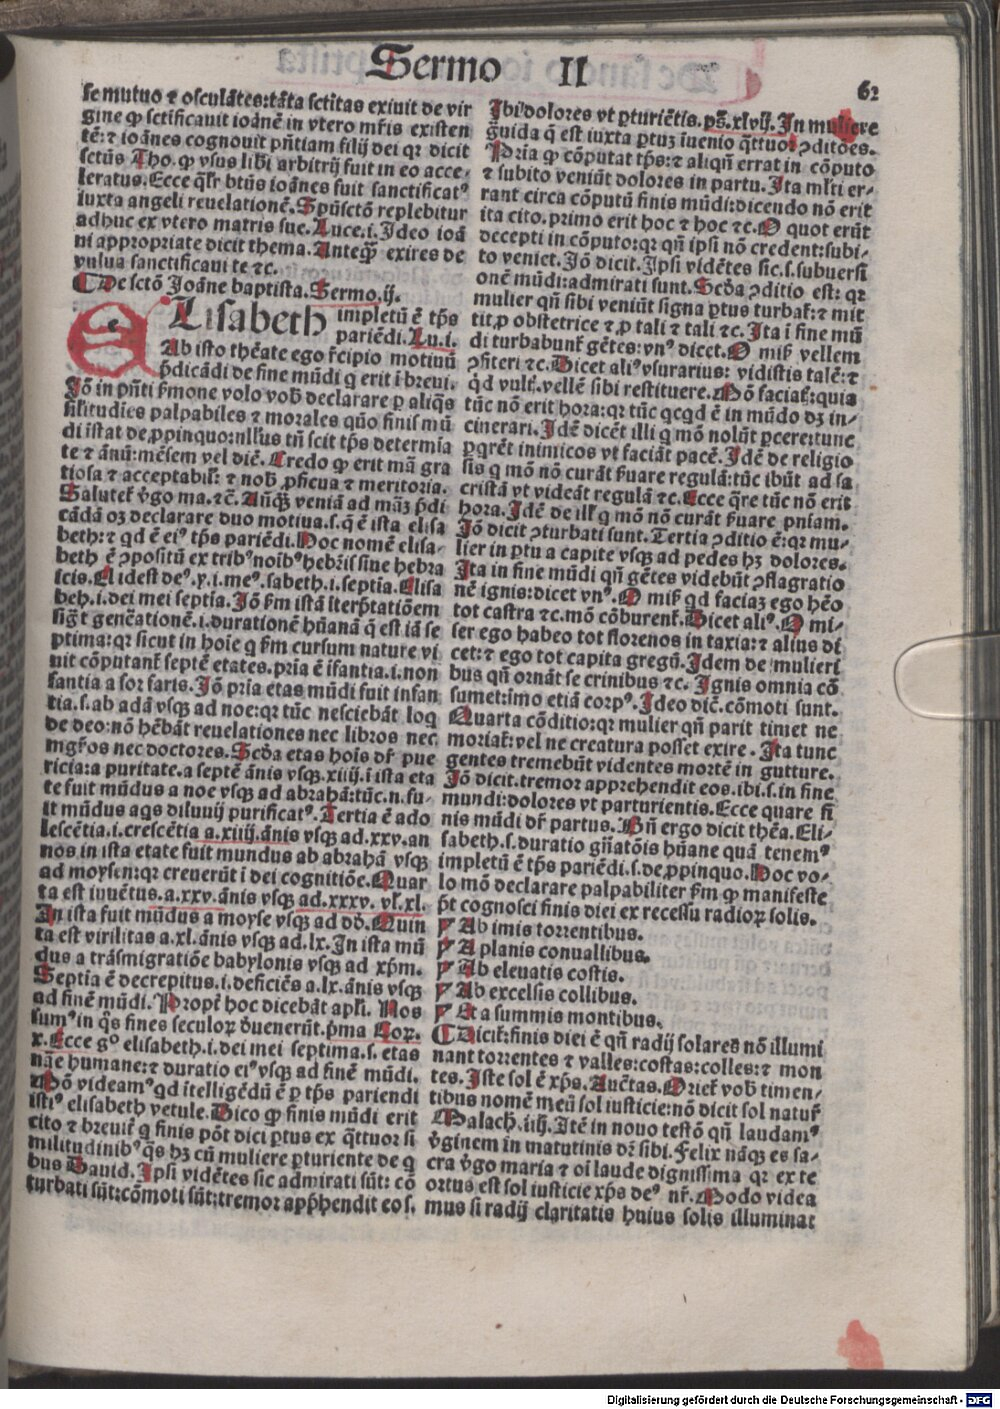 Sermo II
62
se mutuo ⁊ osculātes: tāta sctītas exiuit de vir
gine ꝙ sctificauit ioānē in vtero mr̄is existen
tē: ⁊ ioānes cognouit pn̄tiam filij dei qꝛ dicit
sctūs Tho. ꝙ vsus libī arbitrij fuit in eo acce-
leratus. Ecce qͣlr̄ btūs ioānes fuit sanctificatꝰ
iuxta angeli reuelationē. Spūsctō replebitur
adhuc ex vtero matris sue. Luce. i. Ideo ioā
ni appropriate dicit thema. Anteqͣꝫ exires de
vulua sanctificaui te ⁊c.
De sctō Joāne baptista. Sermo. ij.
ELisabeth impletū ē tp̄s
pariēdi. Lu. i.
Ab isto thēate ego s̄cipio motiuū
p̄dicādi de fine mūdi q̄ erit ī breui.
Jō in pn̄ti s̄mone volo vob̄ declarare ꝑ aliq̄s
silitudīes palpabiles ⁊ morales quō finis mū
di īstat de ꝓpinquo: nllꝰus tn̄ scit tp̄s determīa
te ⁊ ānū: mēsem vel diē. Credo ꝙ erit mā gra
tiosa ⁊ acceptabil̄: ⁊ nob̄ ꝓficua ⁊ meritoria.
Salutet̄ v̄go ma. ⁊c. Anqͣꝫ veniā ad māꝫ p̄di
cādā oꝫ declarare duo motiua. s. q̄ ē ista elisa
beth: ⁊ qd ē eiꝰ tp̄s pariēdi. Hoc nomē elisa-
beth ē ꝯpositū ex tribꝰ noībꝰ hebr̄ēis sine hebra
icis. El idest deꝰ. y. i. meꝰ. sabeth. i. septīa. Elisa
beh. i. dei mei septīa. Jō s̄m istā īterp̄tatiōem
sigͭt̄ gen̄cationē. i. durationē hūanā q̄ est iā se
ptima: qꝛ sicut in hoīe q s̄m cursum nature vi
uit cōputant̄ septē etates. pria ē īfantia. i. non
fantia a for faris. Jō pria etas mūdi fuit infan
tia. s. ab adā vsqꝫ ad noe: qꝛ tūc nesciebāt loq
de deo: nō hēbāt reuelationes nec libros nec
mgr̄os nec doctores. Scd̄a etas hoīs dr̄ pue
ricia: a puritate. a septē ānis vsqꝫ. xiiij. ī ista eta
te fuit mūdus a noe vsqꝫ ad abrahā: tūc. n. fu-
it mūdus aqs diluuij purificatꝰ. Tertia ē ado
lescētia. i. crescētia a. xiiij. ānis vsqꝫ ad. xxv. an
nos in ista etate fuit mundus ab abrahā vsqꝫ
ad moysen: qꝛ creuerūt ī dei cognitiōe. Quar
ta est iuuētus. a. xxv. ānis vsqꝫ ad. xxxv. vl̄. xl.
In ista fuit mūdus a moyse vsqꝫ ad dd̄. Quin
ta est virilitas a. xl. ānis vsqꝫ ad. lx. In ista mū
dus a trāsmigratiōe babylonis vsqꝫ ad xp̄m.
Septīa ē decrepitus. i. deficiēs a. lx. ānis vsqꝫ
ad finē mūdi. Propt̄ hoc dicebāt apl̄i. Nos
sumꝰ in q̄s fines seculoꝝ d̄uenerūt. p̄ma Coꝝ.
x. Ecce gͦ elisabeth. i. dei mei septima. s. etas
nāe humane: ⁊ duratio eiꝰ vsqꝫ ad finē mūdi.
Mō videamꝰ qd ītelligēdū ē ꝑ tp̄s pariendi
istiꝰ elisabeth vetule. Dico ꝙ finis mūdi erit
cito ⁊ breuit̄ q finis pōt dici ꝑtus ex qͣttuor si
militudinibꝰ q̄s hꝫ cū muliere ꝑturiente de q
bus Dauid. Ipsi vidētes sic admirati sūt: cō
turbati sūt: cōmoti sūt: tremor app̄hendit eos.
Ibi dolores vt ꝑturiētis. ps̄. xlvij. In muliere
grauida q̄ est iuxta ꝑtuꝫ iuenio qͣttuor ꝯditōes.
Pria ꝙ cōputat tp̄s: ⁊ aliqn̄ errat in cōputo
⁊ subito veniūt dolores in partu. Ita ml̄ti er-
rant circa cōputū finis mūdi: dicendo nō erit
ita cito. primo erit hoc ⁊ hoc ⁊c. O quot erūt
decepti in cōputo: qꝛ qn̄ ipsi nō credent: subi-
to veniet. Jō dicit. Ipsi vidētes sic. s. subuersi
onē mūdi: admirati sunt. Scd̄a ꝯditio est: qꝛ
mulier qn̄ sibi veniūt signa ꝑtus turbat̄: ⁊ mit
tit ꝓ obstetrice ⁊ ꝓ tali ⁊ tali ⁊c. Ita ī fine mū
di turbabunt̄ gētes: vnꝰ dicet. O mihi vellem
ꝯfiteri ⁊c. Dicet aliꝰ vsurarius: vidistis talē: ⁊
q̄d vult. vellē sibi restituere. Nō faciat̄: quia
tūc nō erit hora: qꝛ tūc qcqd ē in mūdo dꝫ in-
cinerari. Idē dicēt illi q mō nolūt ꝑcere: tunc
ꝑgrēt inimicos vt faciāt pacē. Idē de religio
sis q mō nō curāt s̄uare regulā: tūc ibūt ad sa
cristā vt videāt regulā ⁊c. Ecce q̄re tūc nō erit
hora. Idē de ill̄ q mō nō curāt s̄uare pn̄iam.
Jō dicit ꝯturbati sunt. Tertia ꝯditio ē: qꝛ mu-
lier in ꝑtu a capite vsqꝫ ad pedes hꝫ dolores.
Ita in fine mūdi qn̄ gētes videbūt ꝯflagratio
nē ignis: dicet vnꝰ. O mihi qd faciaꝫ ego hēo
tot castra ⁊c. mō cōburent̄. Dicet aliꝰ. O mi-
ser ego habeo tot florenos in taxia: ⁊ alius di
cet: ⁊ ego tot capita gregū. Idem de mulieri
bus qn̄ ornāt se crinibus ⁊c. Ignis omnia cō
sumet: imo etiā corpꝰ. Ideo dic̄. cōmoti sunt.
Quarta cōditio: qꝛ mulier qn̄ parit timet ne
moriat̄: vel ne creatura posset exire. Ita tunc
gentes tremebūt videntes mortē in gutture.
Jō dicit. tremor apprehendit eos. ibi. s. in fine
mundi: dolores vt parturientis. Ecce quare fi
nis mūdi dr̄ partus. Bn̄ ergo dicit thēa. Eli-
sabeth. s. duratio gn̄atōis hūane quā tenemꝰ
impletū ē tp̄s pariēdi. s. de ꝓpinquo. Hoc vo-
lo mō declarare palpabiliter s̄m ꝙ manifeste
p̄t cognosci finis diei ex recessu radioꝝ solis.
Ab imis torrentibus.
A planis conuallibus.
Ab eleuatis costis.
Ab excelsis collibus.
Et a summis montibus.
Dicit̄: finis diei ē qn̄ radij solares nō illumi
nant torrentes ⁊ valles: costas: colles: ⁊ mon
tes. Iste sol ē xp̄s. Auc̄tas. Oriet̄ vob̄ timen-
tibus nomē meū sol iusticie: nō dicit sol natur̄
Malach. iiij. Itē in nouo testō qn̄ laudamꝰ
v̄ginem in matutinis dr̄ sibi. Felix nāqꝫ es sa-
cra v̄go maria ⁊ oī laude dignissima qꝛ ex te
ortus est sol iusticie xp̄s deꝰ nr̄. Modo videa
mus si radij claritatis huius solis illuminat
Digitalisierung gefördert durch die Deutsche Forschungsgemeinschaft - DFG